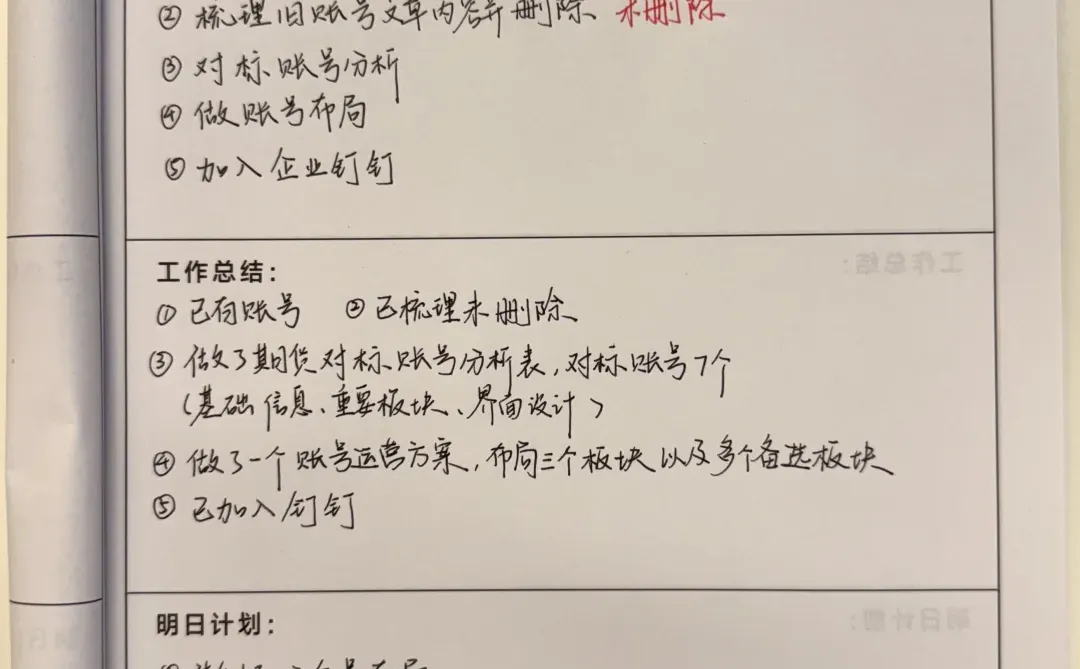 ② 梳理旧账号文章内容并删除 未删除
③ 对标账号分析
④ 做账号布局
⑤ 加入企业钉钉
工作总结：
① 已有账号 ② 已梳理未删除
③ 做了期货对标账号分析表，对标账号7个
（基础信息、重要板块、界面设计）
④ 做了一个账号运营方案，布局三个板块以及多个备选板块
⑤ 已加入钉钉
明日计划：